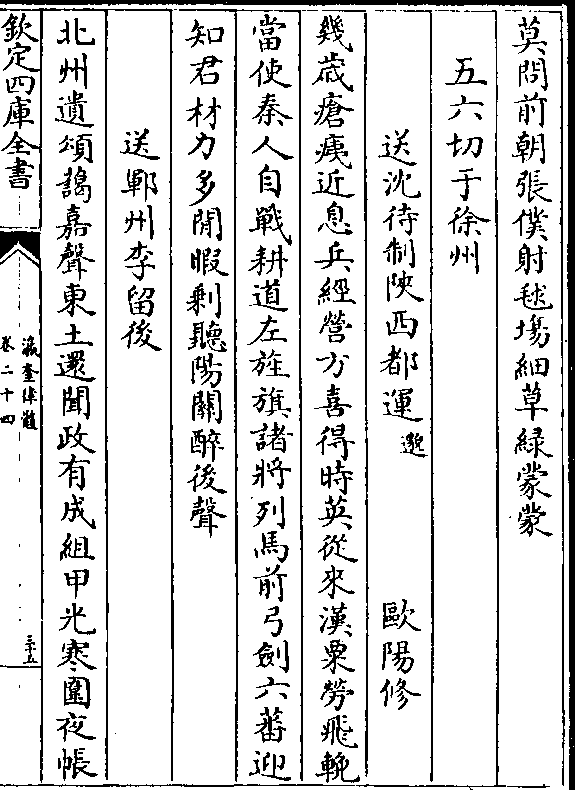 莫問前朝張僕射毬場細草綠蒙蒙
五六切于徐州
送沈待制陜西都運邈 歐陽修
幾歲瘡痍近息兵經營方喜得時英從來漢粟勞飛輓
當使秦人自戰耕道左旌旗諸將列馬前弓劍六蕃迎
知君材力多閒暇剩聽陽關醉後聲
送鄆州李留後
北州遺頌藹嘉聲東土還聞政有成組甲光寒圍夜帳
欽定四庫全書
瀛奎律髓
卷二十四
三五